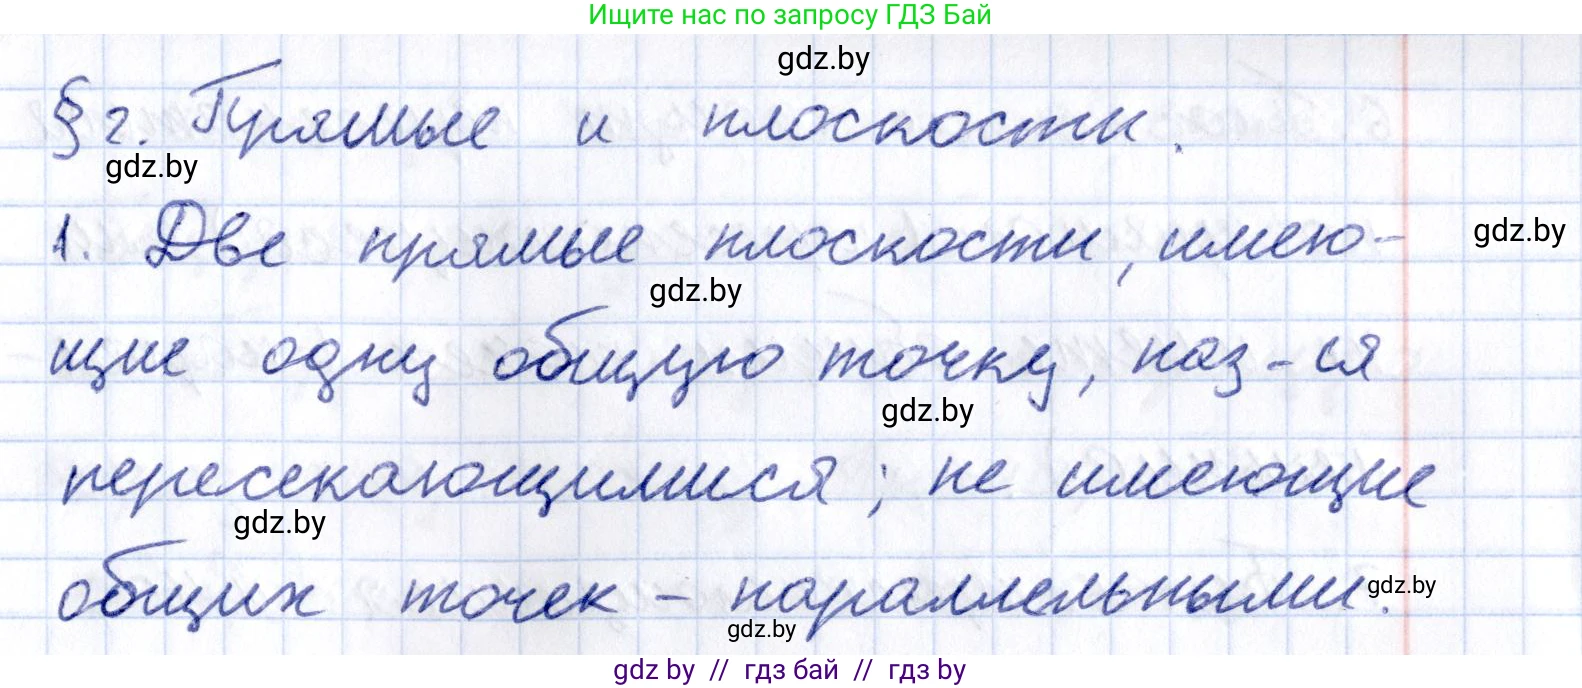 Ищите нас по запросу ГДЗ Бай
gdz.by
§ 2. Прямые и плоскости.
gdz.by
1. Две прямые плоскости, имею-
gdz.by
gdz.by
щие одну общую точку, наз-ся
gdz.by
пересекающимися; не имеющие
gdz.by
общих точек – параллельными.
gdz.by
gdz.by
gdz by // гдз бай // гдз by